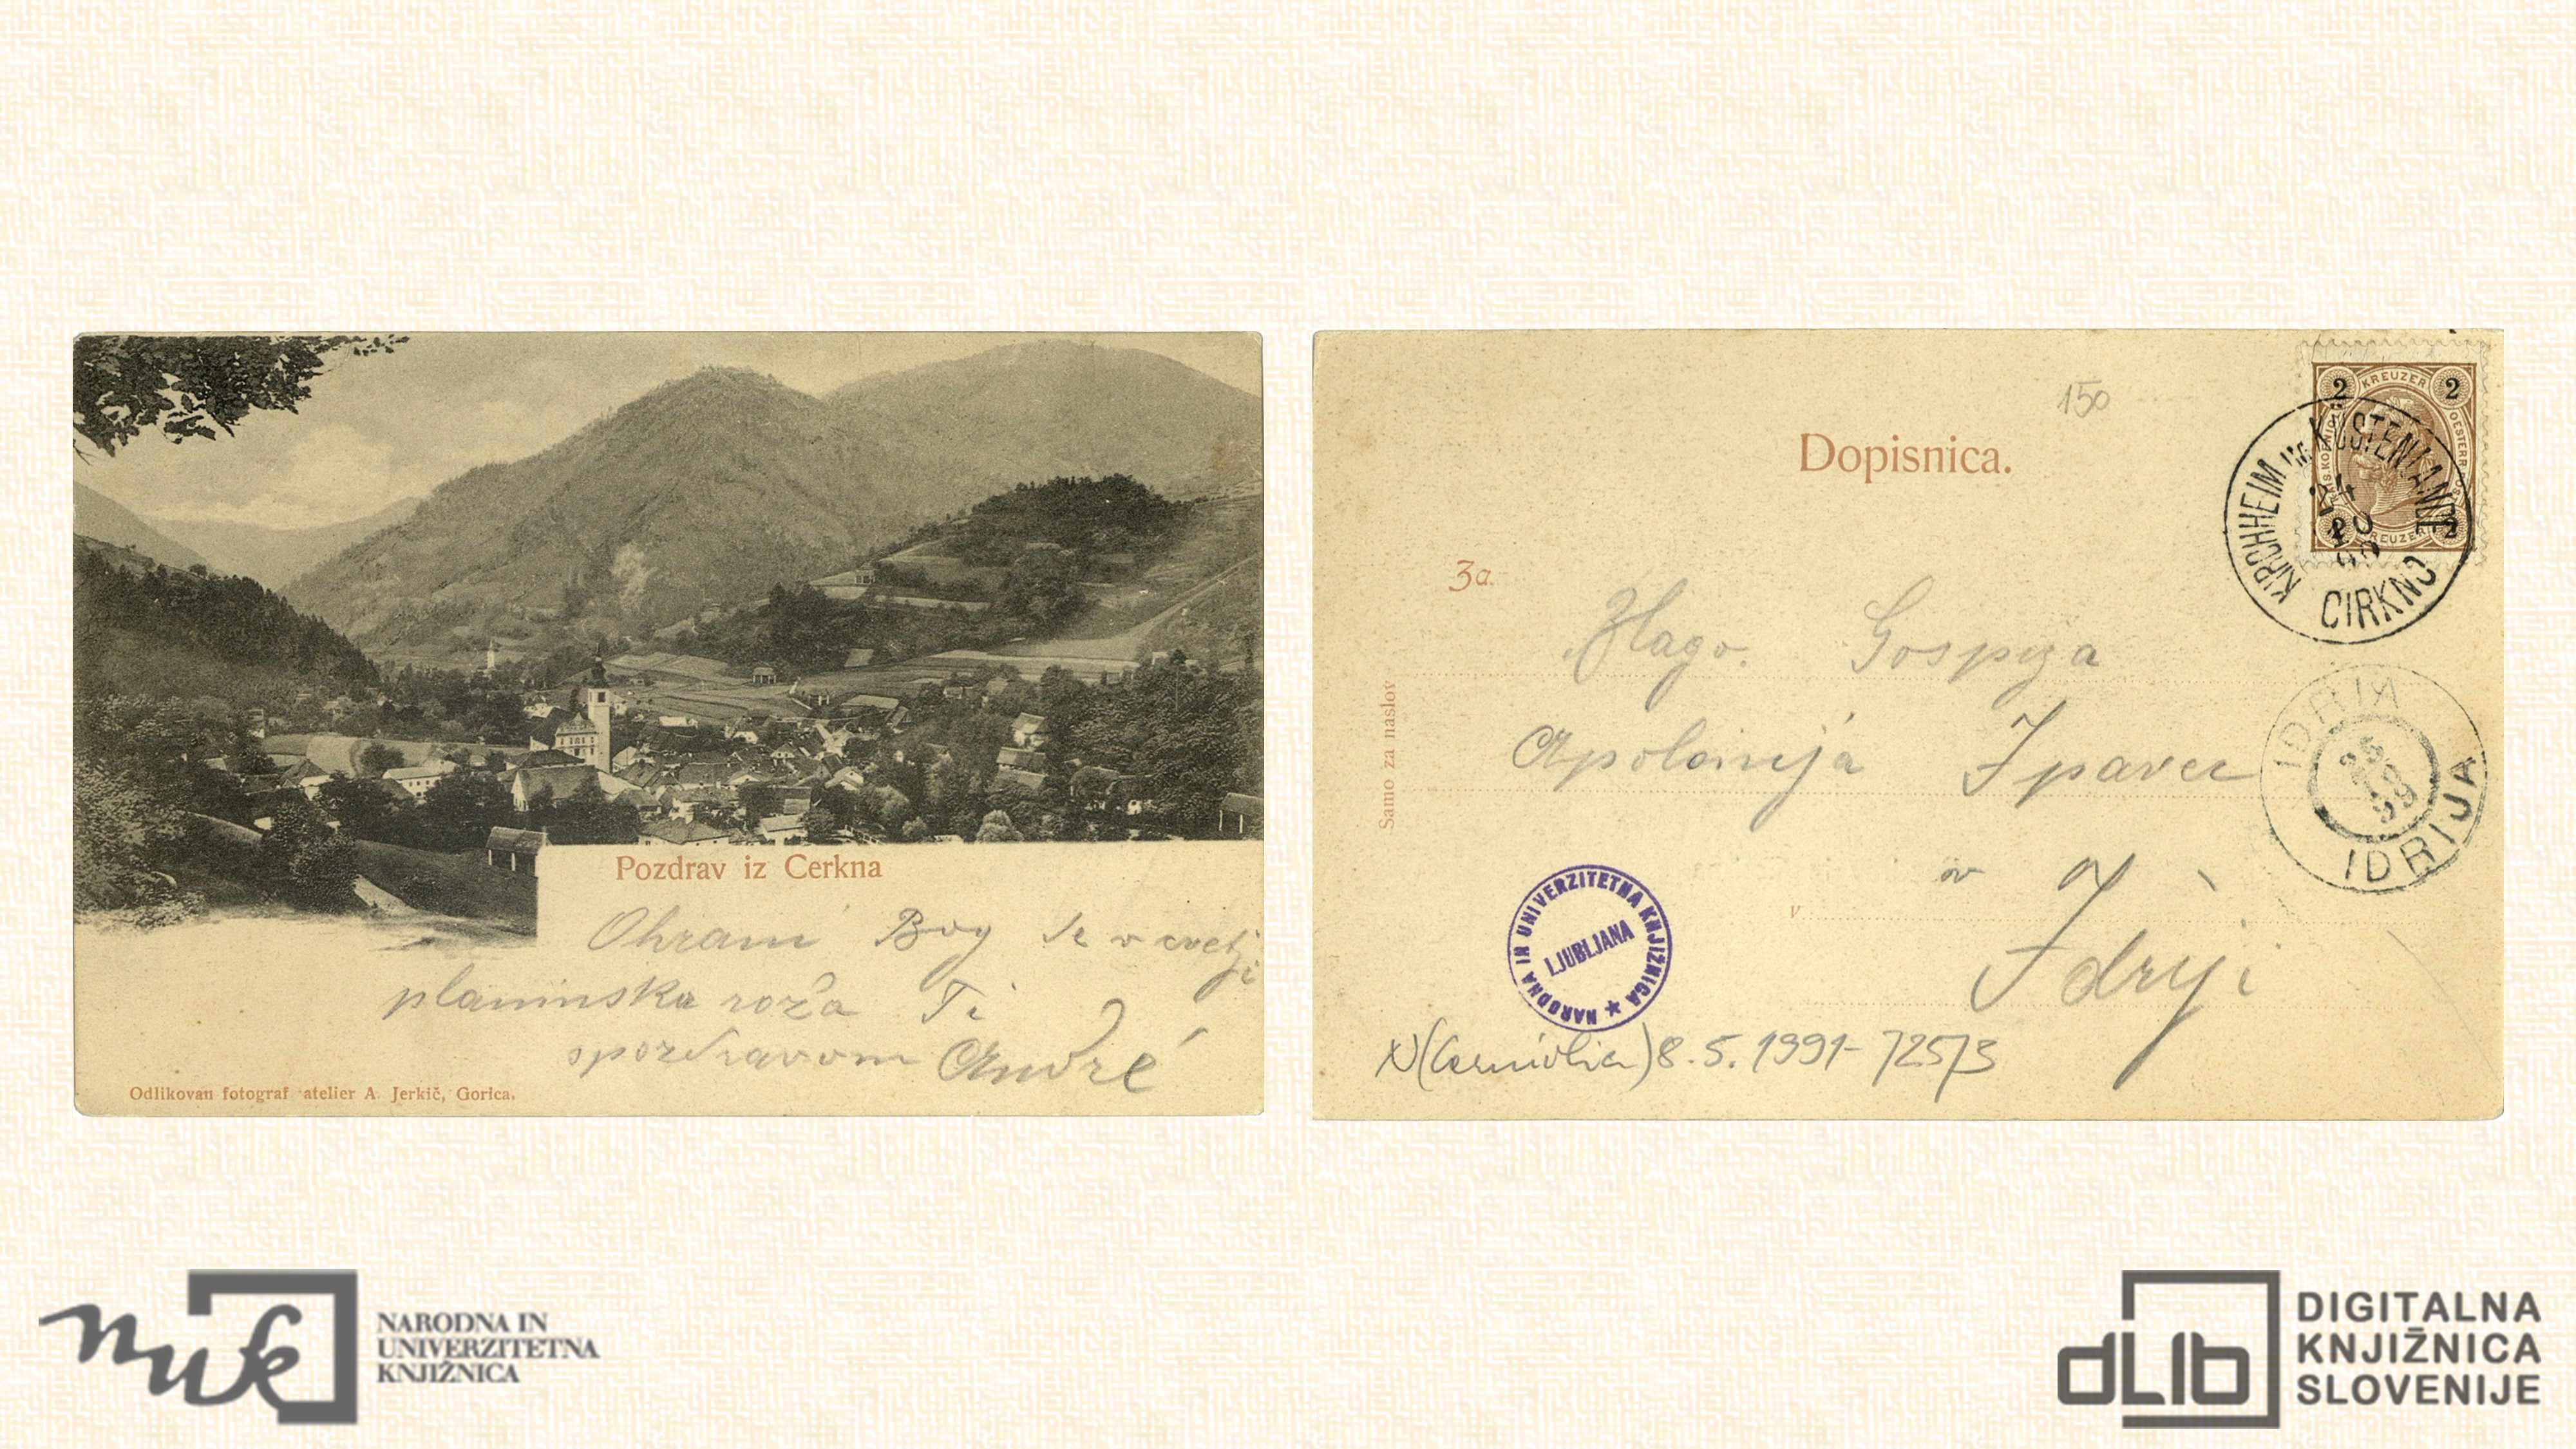 Pozdrav iz Cerkna
Ohrani Bog Te v cvetji
planinska roža Ti
s pozdravom André
Odlikovan fotograf atelier A. Jerkič, Gorica.
150
Dopisnica.
3a.
2 KREUZER 2
KIRCHHEIM IM KÜSTENLANDE
CIRKNO
Blago. Gospica
Apolonija Ipavec
v
v Idriji
Samo za naslov
IDRIA
25
99
IDRIJA
NARODNA IN UNIVERZITETNA KNJIŽNICA
LJUBLJANA
8. 5. 1991 - 725/3
nuk
NARODNA IN
UNIVERZITETNA
KNJIŽNICA
dLib
DIGITALNA
KNJIŽNICA
SLOVENIJE